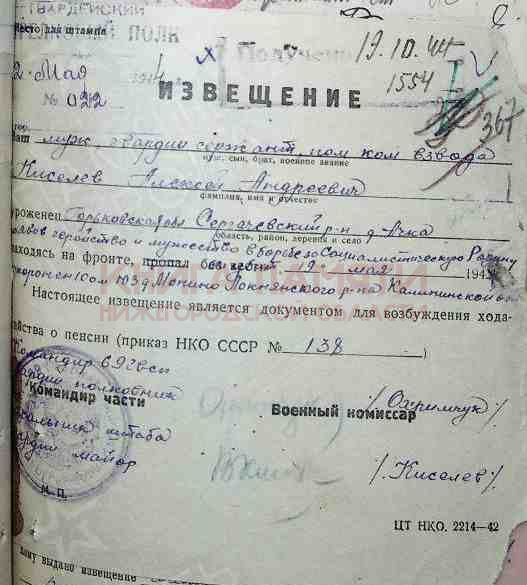 ГВАРДЕЙСКИЙ
ПОЛК
Место для штампа
Получено 19.10.44
2 Мая 1944
1554
№ 022
ИЗВЕЩЕНИЕ
367
Ваш муж, гвардии сержант, пом ком взвода
муж, сын, брат, военное звание
Киселев Алексей Андреевич
фамилия, имя и отчество
уроженец Горьковская обл Сергачевский р-н д. Ачка
область, район, деревня и село
геройство и мужество в бою за Социалистическую Родину
находясь на фронте, пропал без вести 19 мая 194
похоронен 1 Локнянского р-на Калининской
КНИГА ПАМЯТИ
НИЖЕГОРОДСКОЙ ОБЛАСТИ
Настоящее извещение является документом для возбуждения хода-
тайства о пенсии (приказ НКО СССР № 138 )
Командир
гвардии полковник
Командир части
Военный комиссар
/Охримчук/
Начальник штаба
гвардии майор
/Киселев/
М. П.
ЦТ НКО. 2214—42
Кому выдано извещение